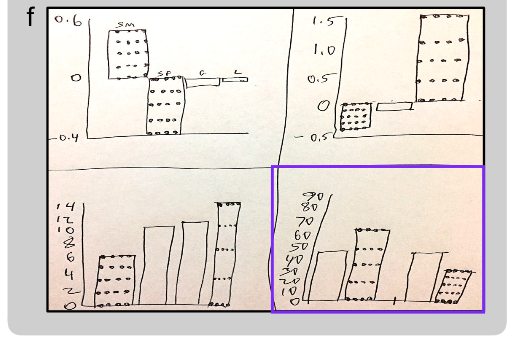 f
0.6
SM
0
SP G L
-0.4
1.5
1.0
0.5
0
-0.5
14
12
10
8
6
4
2
0
90
80
70
60
50
40
30
20
10
0